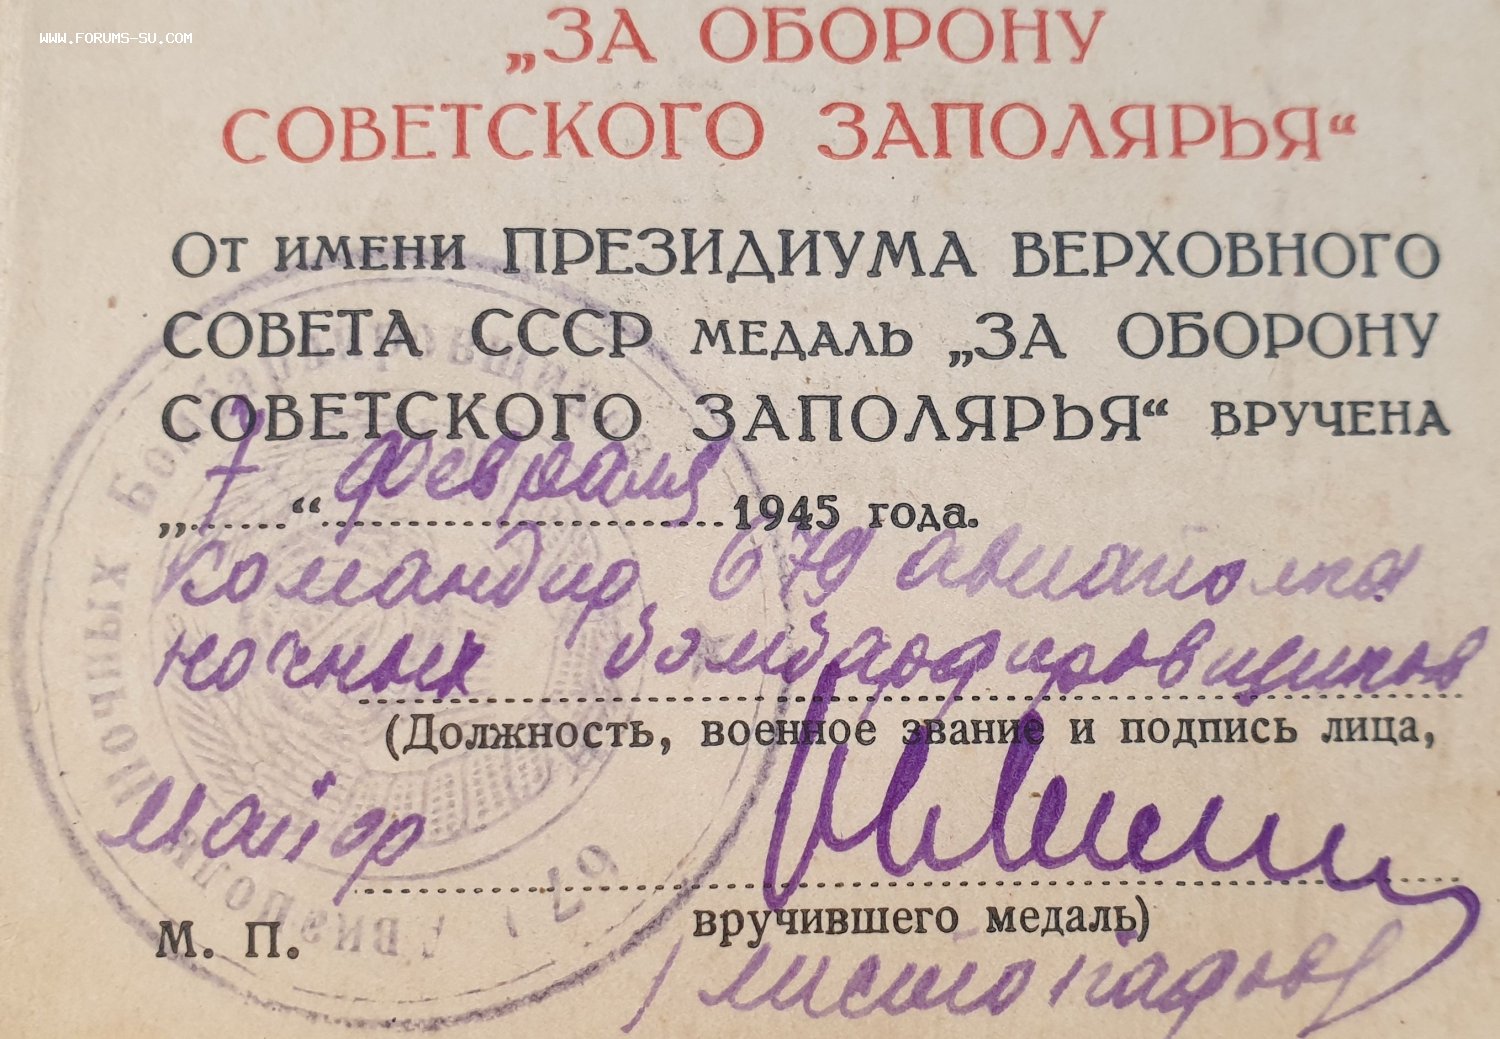 www.forums-su.com
„ЗА ОБОРОНУ
СОВЕТСКОГО ЗАПОЛЯРЬЯ“
От имени ПРЕЗИДИУМА ВЕРХОВНОГО
СОВЕТА СССР медаль „ЗА ОБОРОНУ
СОВЕТСКОГО ЗАПОЛЯРЬЯ“ вручена
„ 7 “ февраля 1945 года.
Командир 679 авиаполка
ночных бомбардировщиков
(Должность, военное звание и подпись лица,
майор
вручившего медаль)
М. П.
Ночных Бомбардировщиков
Авиаполк